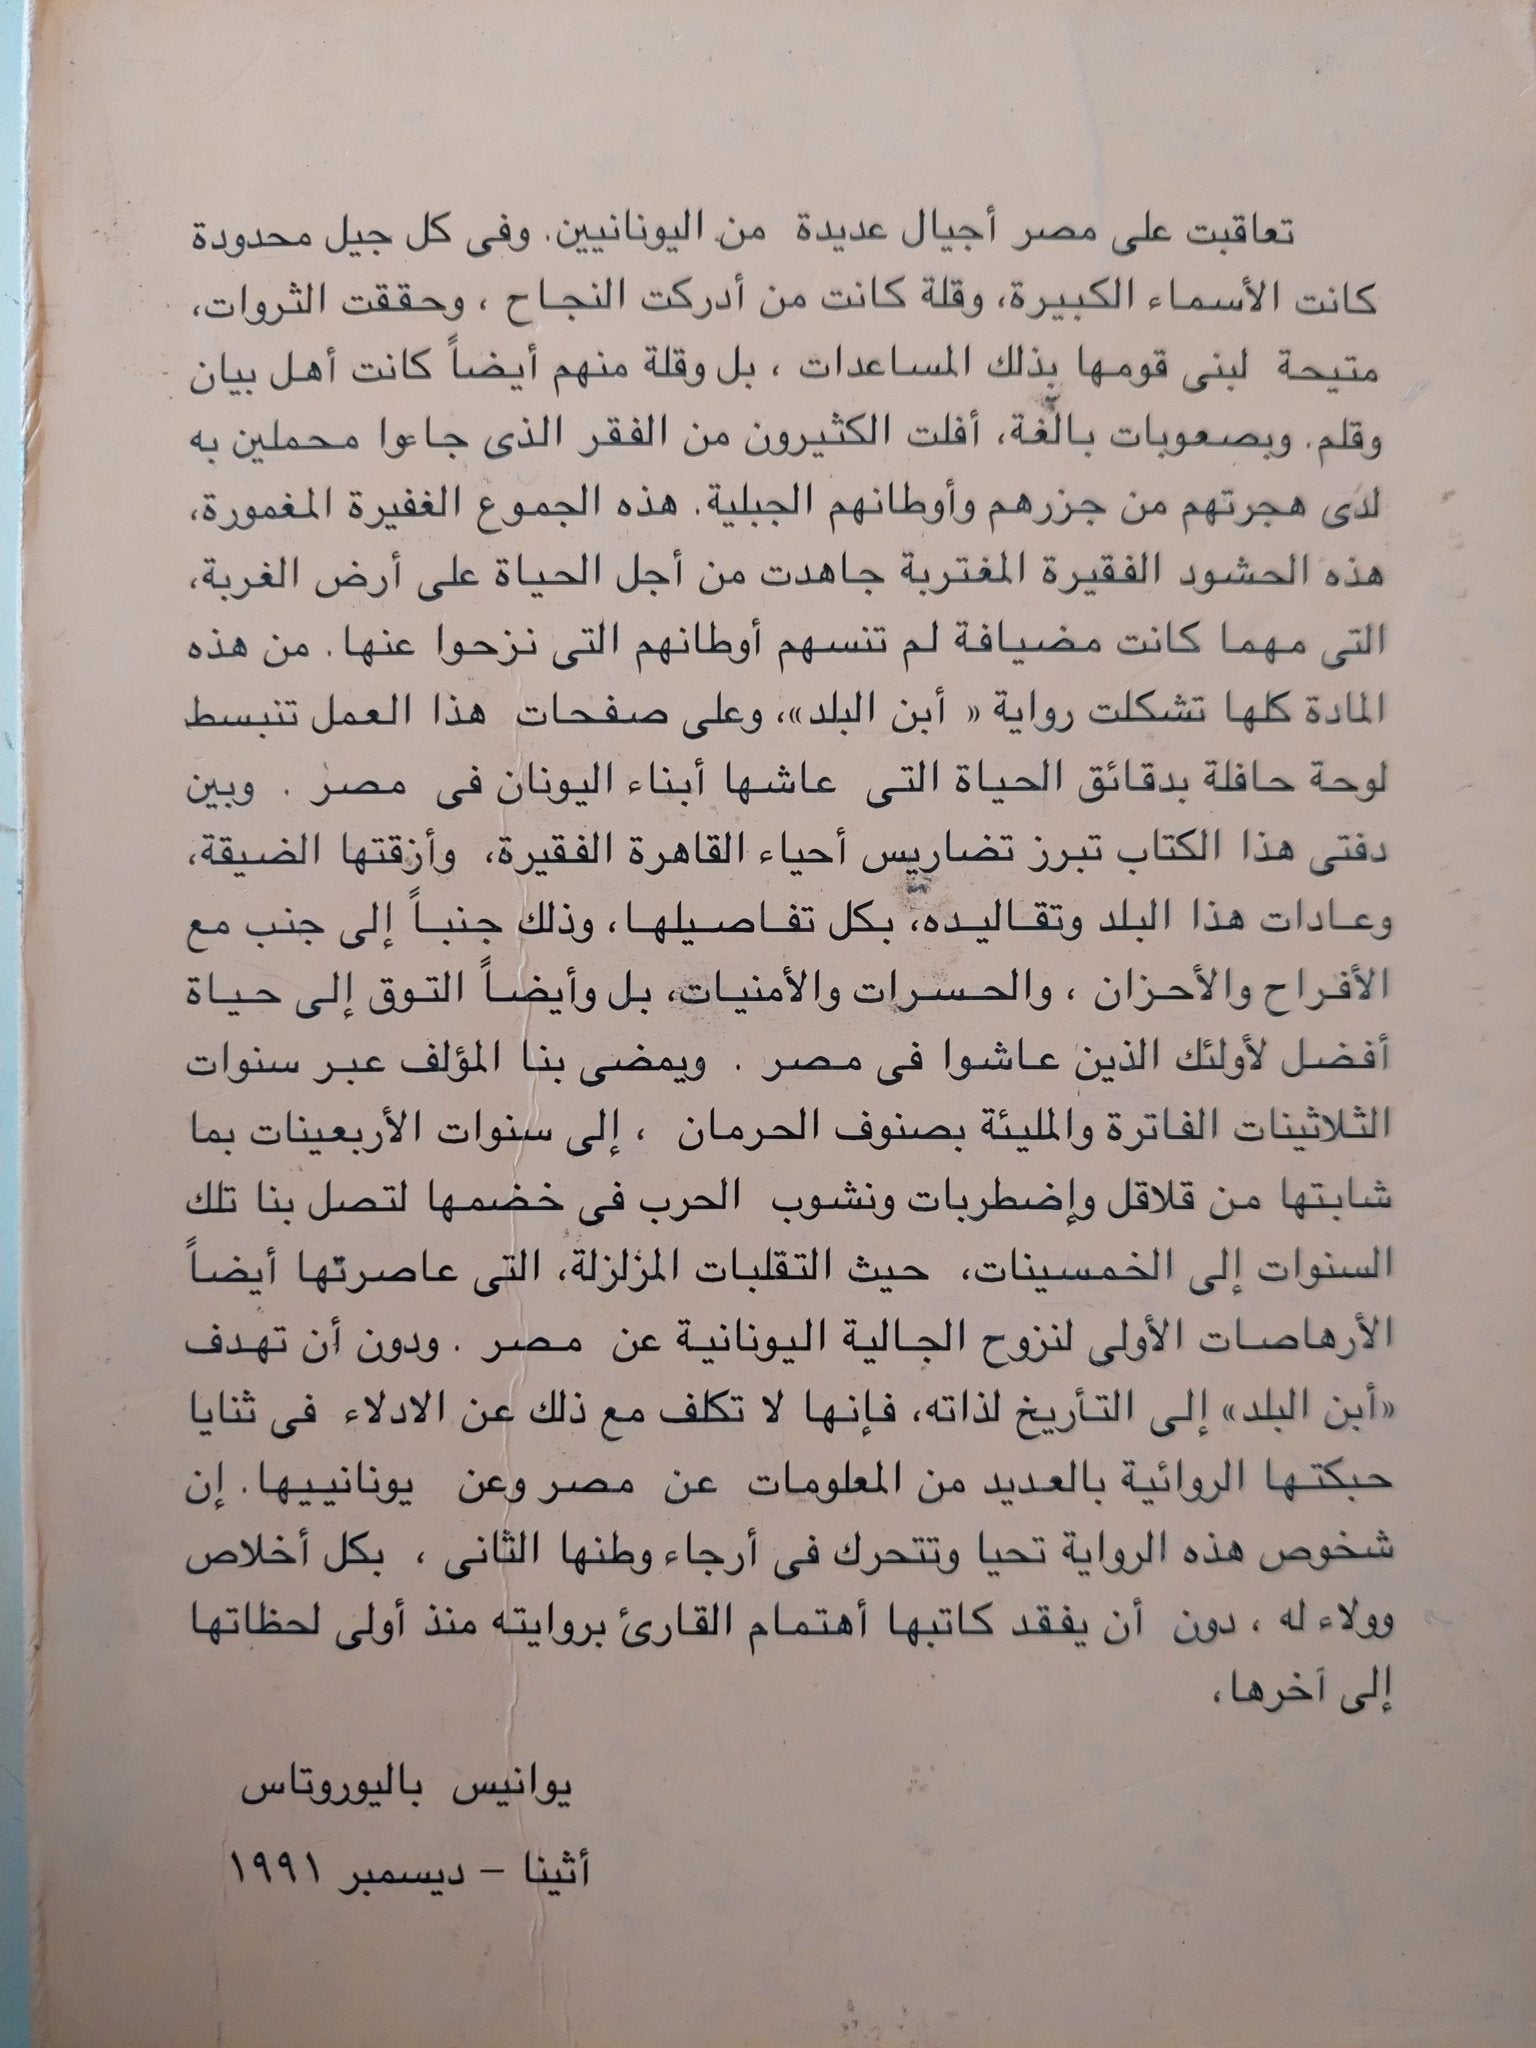 تعاقبت على مصر أجيال عديدة من اليونانيين. وفى كل جيل محدودة
كانت الأسماء الكبيرة، وقلة كانت من أدركت النجاح ، وحققت الثروات،
متيحة لبنى قومها بذلك المساعدات ، بل وقلة منهم أيضاً كانت أهل بيان
وقلم. وبصعوبات بالغة، أفلت الكثيرون من الفقر الذى جاءوا محملين به
لدى هجرتهم من جزرهم وأوطانهم الجبلية. هذه الجموع الغفيرة المغمورة،
هذه الحشود الفقيرة المغتربة جاهدت من أجل الحياة على أرض الغربة،
التى مهما كانت مضيافة لم تنسهم أوطانهم التى نزحوا عنها. من هذه
المادة كلها تشكلت رواية « أبن البلد»، وعلى صفحات هذا العمل تنبسط
لوحة حافلة بدقائق الحياة التى عاشها أبناء اليونان فى مصر . وبين
دفتى هذا الكتاب تبرز تضاريس أحياء القاهرة الفقيرة، وأزقتها الضيقة،
وعادات هذا البلد وتقاليده، بكل تفاصيلها، وذلك جنباً إلى جنب مع
الأفراح والأحزان ، والحسرات والأمنيات، بل وأيضاً التوق إلى حياة
أفضل لأولئك الذين عاشوا فى مصر . ويمضى بنا المؤلف عبر سنوات
الثلاثينات الفاترة والمليئة بصنوف الحرمان ، إلى سنوات الأربعينات بما
شابتها من قلاقل وإضطربات ونشوب الحرب فى خضمها لتصل بنا تلك
السنوات إلى الخمسينات، حيث التقلبات المزلزلة، التى عاصرتها أيضاً
الأرهاصات الأولى لنزوح الجالية اليونانية عن مصر . ودون أن تهدف
«أبن البلد» إلى التأريخ لذاته، فإنها لا تكلف مع ذلك عن الادلاء فى ثنايا
حبكتها الروائية بالعديد من المعلومات عن مصر وعن يونانييها. إن
شخوص هذه الرواية تحيا وتتحرك فى أرجاء وطنها الثانى ، بكل أخلاص
وولاء له ، دون أن يفقد كاتبها أهتمام القارئ بروايته منذ أولى لحظاتها
إلى آخرها،
يوانيس باليوروتاس
أثينا - ديسمبر ١٩٩١